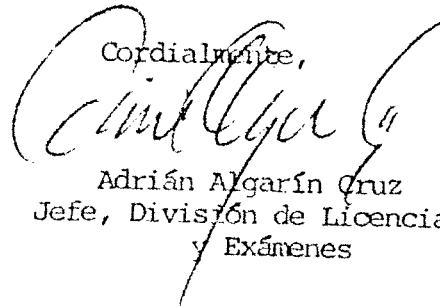 Cordialmente,
Adrián Algarín Cruz
Jefe, División de Licencia
y Exámenes